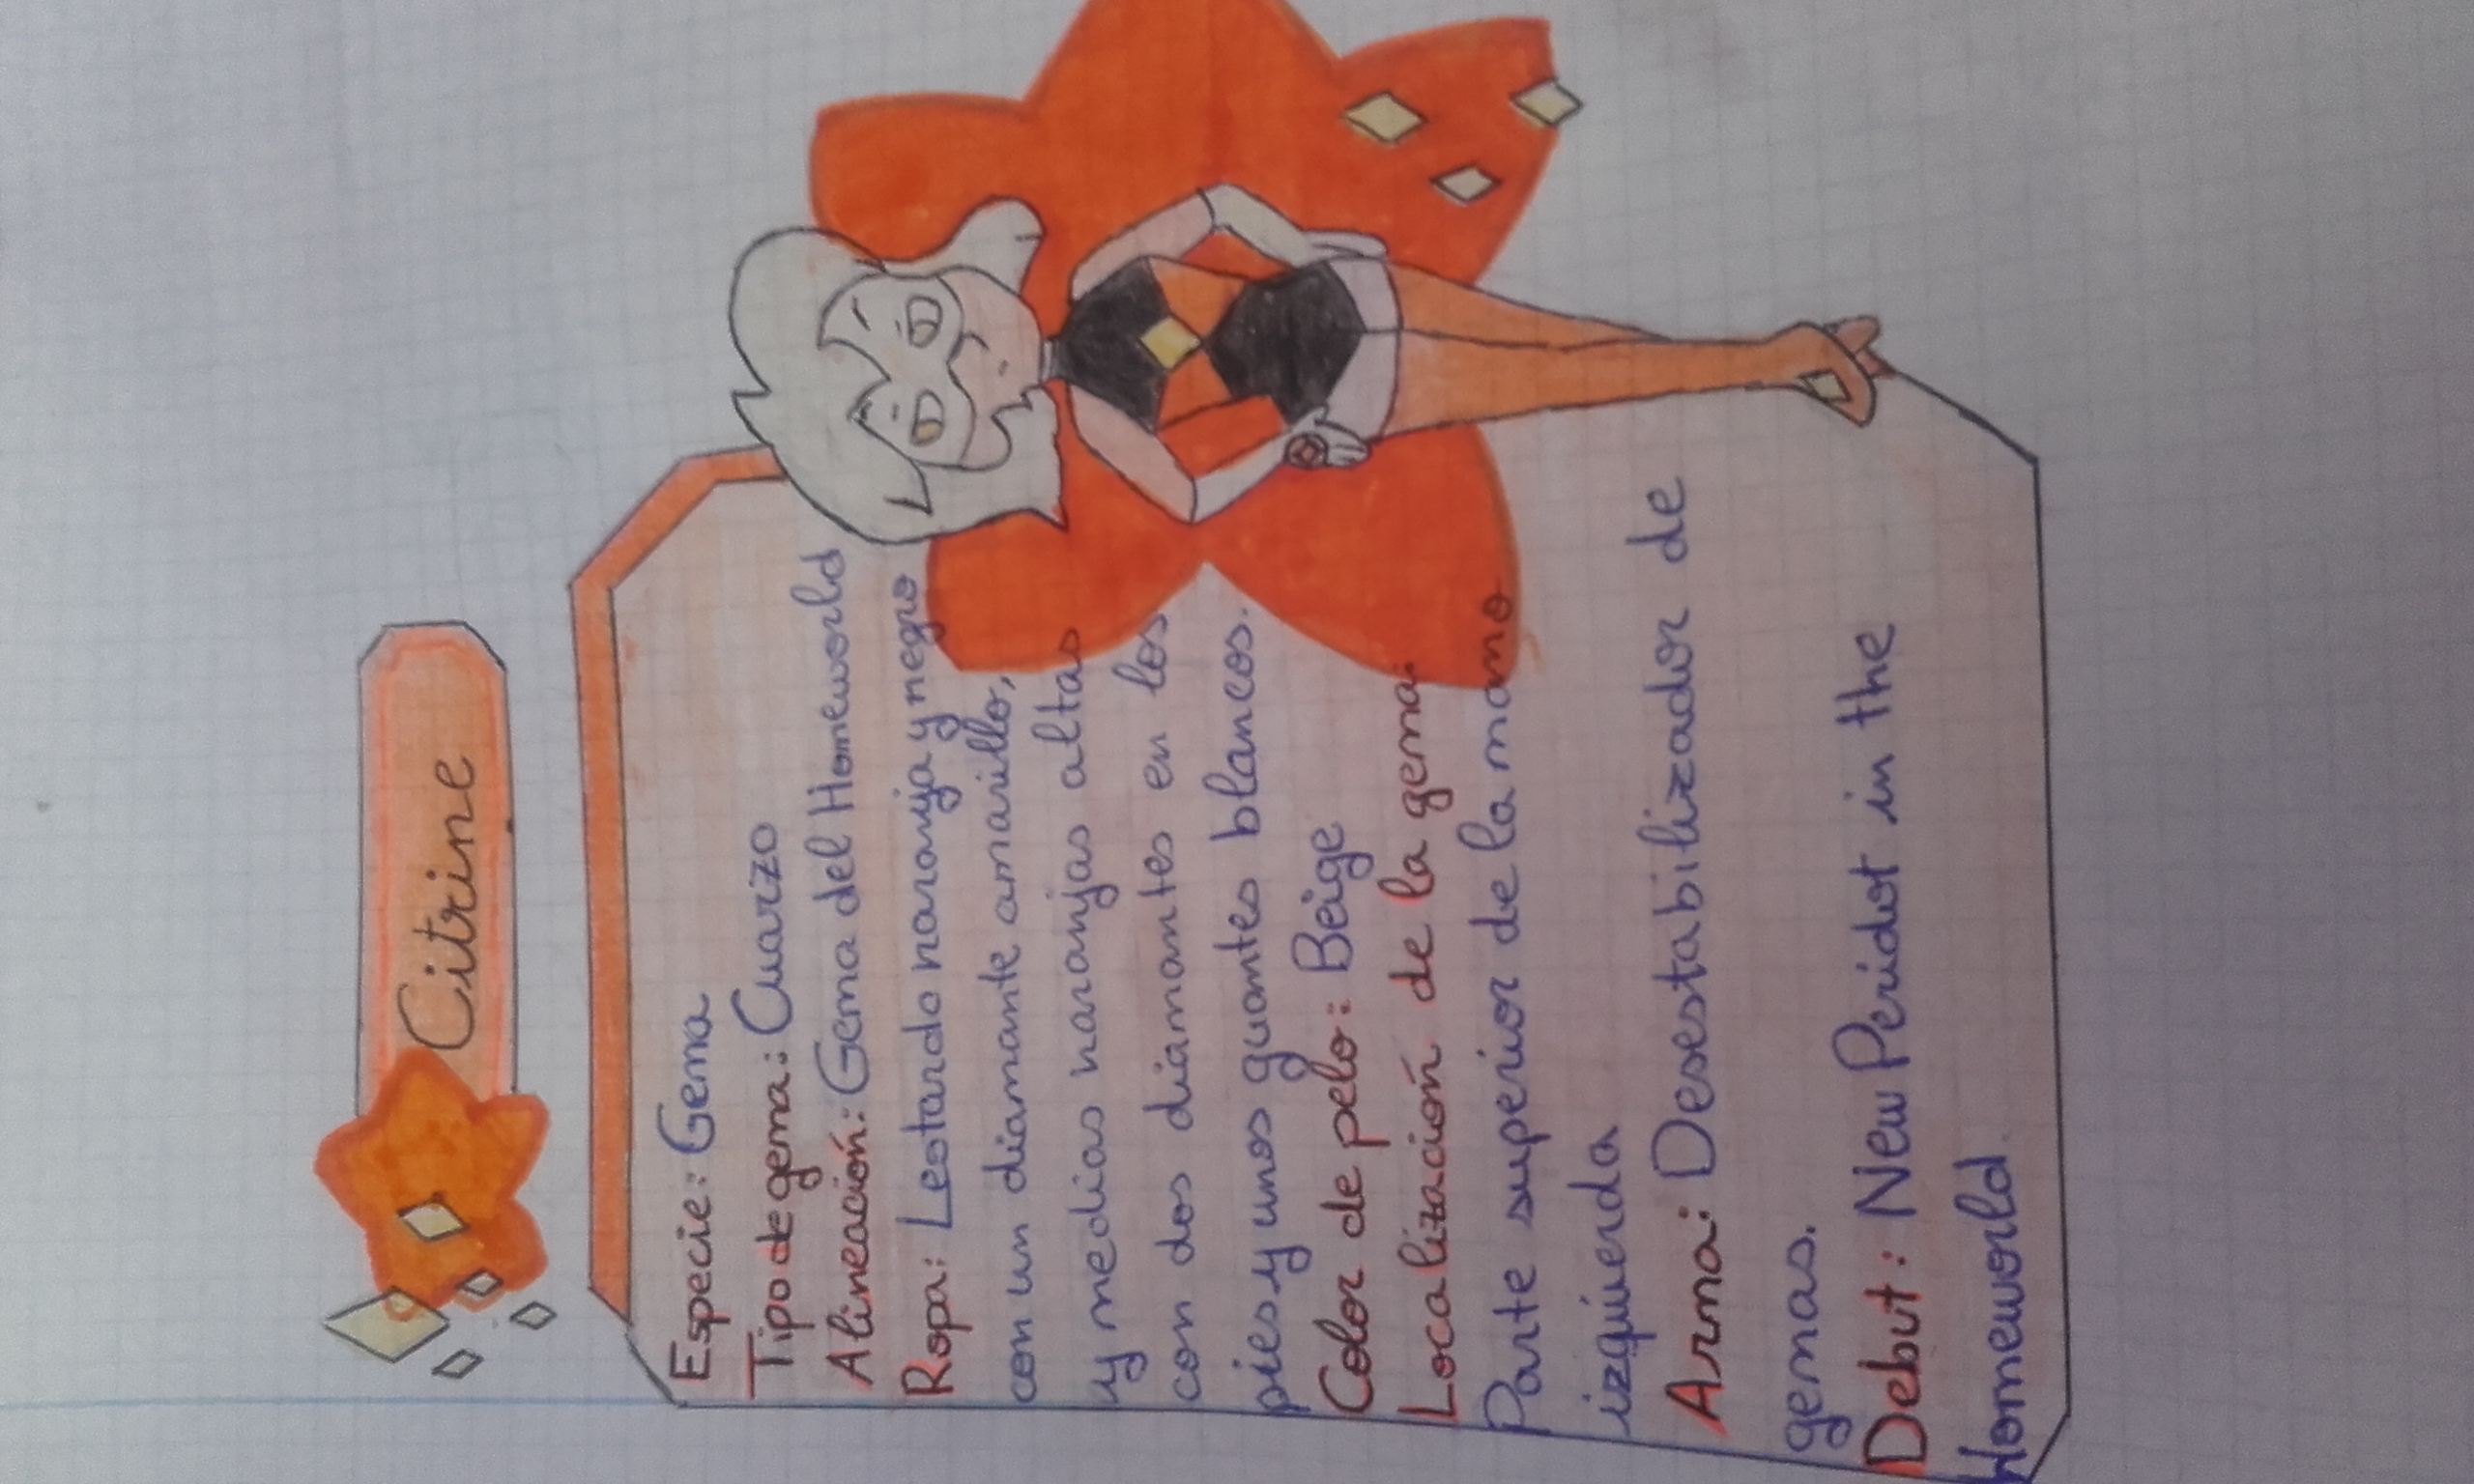 Citrine
Especie: Gema
Tipo de gema: Cuarzo
Alineación: Gema del Homeworld
Ropa: Leotardo naranja y negro
con un diamante amarillo,
y medias naranjas altas
con dos diamantes en los
pies y unos guantes blancos.
Color de pelo: Beige
Localización de la gema:
Parte superior de la mano
izquierda
Arma: Desestabilizador de
gemas.
Debut: New Peridot in the
Homeworld